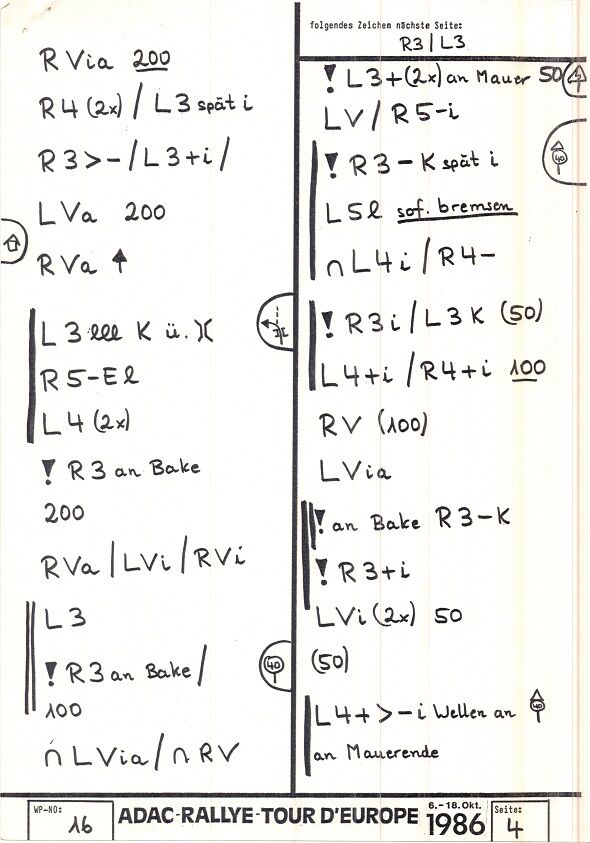 R Via 200
R4 (2x) / L3 spät i
R3>-/L3+i/
LVa 200
RVa ↑
L3 lll K ü. )(
R5-El
L4 (2x)
! R3 an Bake
200
RVa / LVi / RVi
L3
! R3 an Bake /
40
100
∩ LVia / ∩ RV
folgendes Zeichen nächste Seite:
R3 / L3
! L3+(2x) an Mauer 50
LV / R5-i
! R3-K spät i
40
L5l sof. bremsen
∩ L4i / R4-
! R3i / L3K (50)
L4+i / R4+i 100
RV (100)
LVia
! an Bake R3-K
! R3+i
LVi (2x) 50
(50)
L4+>-i Wellen an 40
an Mauerende
WP-NO: 16
ADAC-RALLYE-TOUR D'EUROPE 6.-18.Okt. 1986
Seite: 4